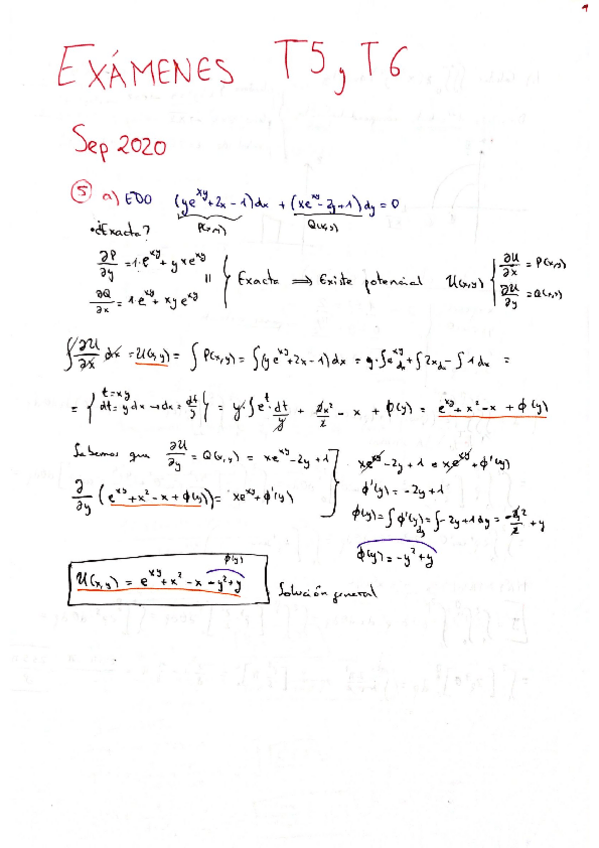 EXÁMENES T5 y T6
Sep 2020
5 a) EDO (ye^{xy}+2x-1)dx + (xe^{xy}-2y+1)dy = 0
P(x,y) Q(x,y)
• ¿Exacta?
∂P/∂y = 1·e^{xy} + yxe^{xy}
∂Q/∂x = 1·e^{xy} + xye^{xy}
= } Exacta ⟹ Existe potencial U(x,y) { ∂U/∂x = P(x,y)
∂U/∂y = Q(x,y)
∫ ∂U/∂x dx = U(x,y) = ∫ P(x,y) = ∫(ye^{xy}+2x-1)dx = y·∫e^{xy}dx + ∫2x dx - ∫1dx =
= { t=xy dt=ydx → dx=dt/y } = y·∫e^t·dt/y + 2x²/2 - x + ϕ(y) = e^{xy}+x²-x+ϕ(y)
Sabemos que ∂U/∂y = Q(x,y) = xe^{xy}-2y+1
∂/∂y (e^{xy}+x²-x+ϕ(y)) = xe^{xy}+ϕ'(y)
xe^{xy}-2y+1 = xe^{xy}+ϕ'(y)
ϕ'(y) = -2y+1
ϕ(y) = ∫ϕ'(y)dy = ∫-2y+1dy = -2y²/2 + y
ϕ(y) = -y²+y
ϕ(y)
U(x,y) = e^{xy}+x²-x-y²+y Solución general